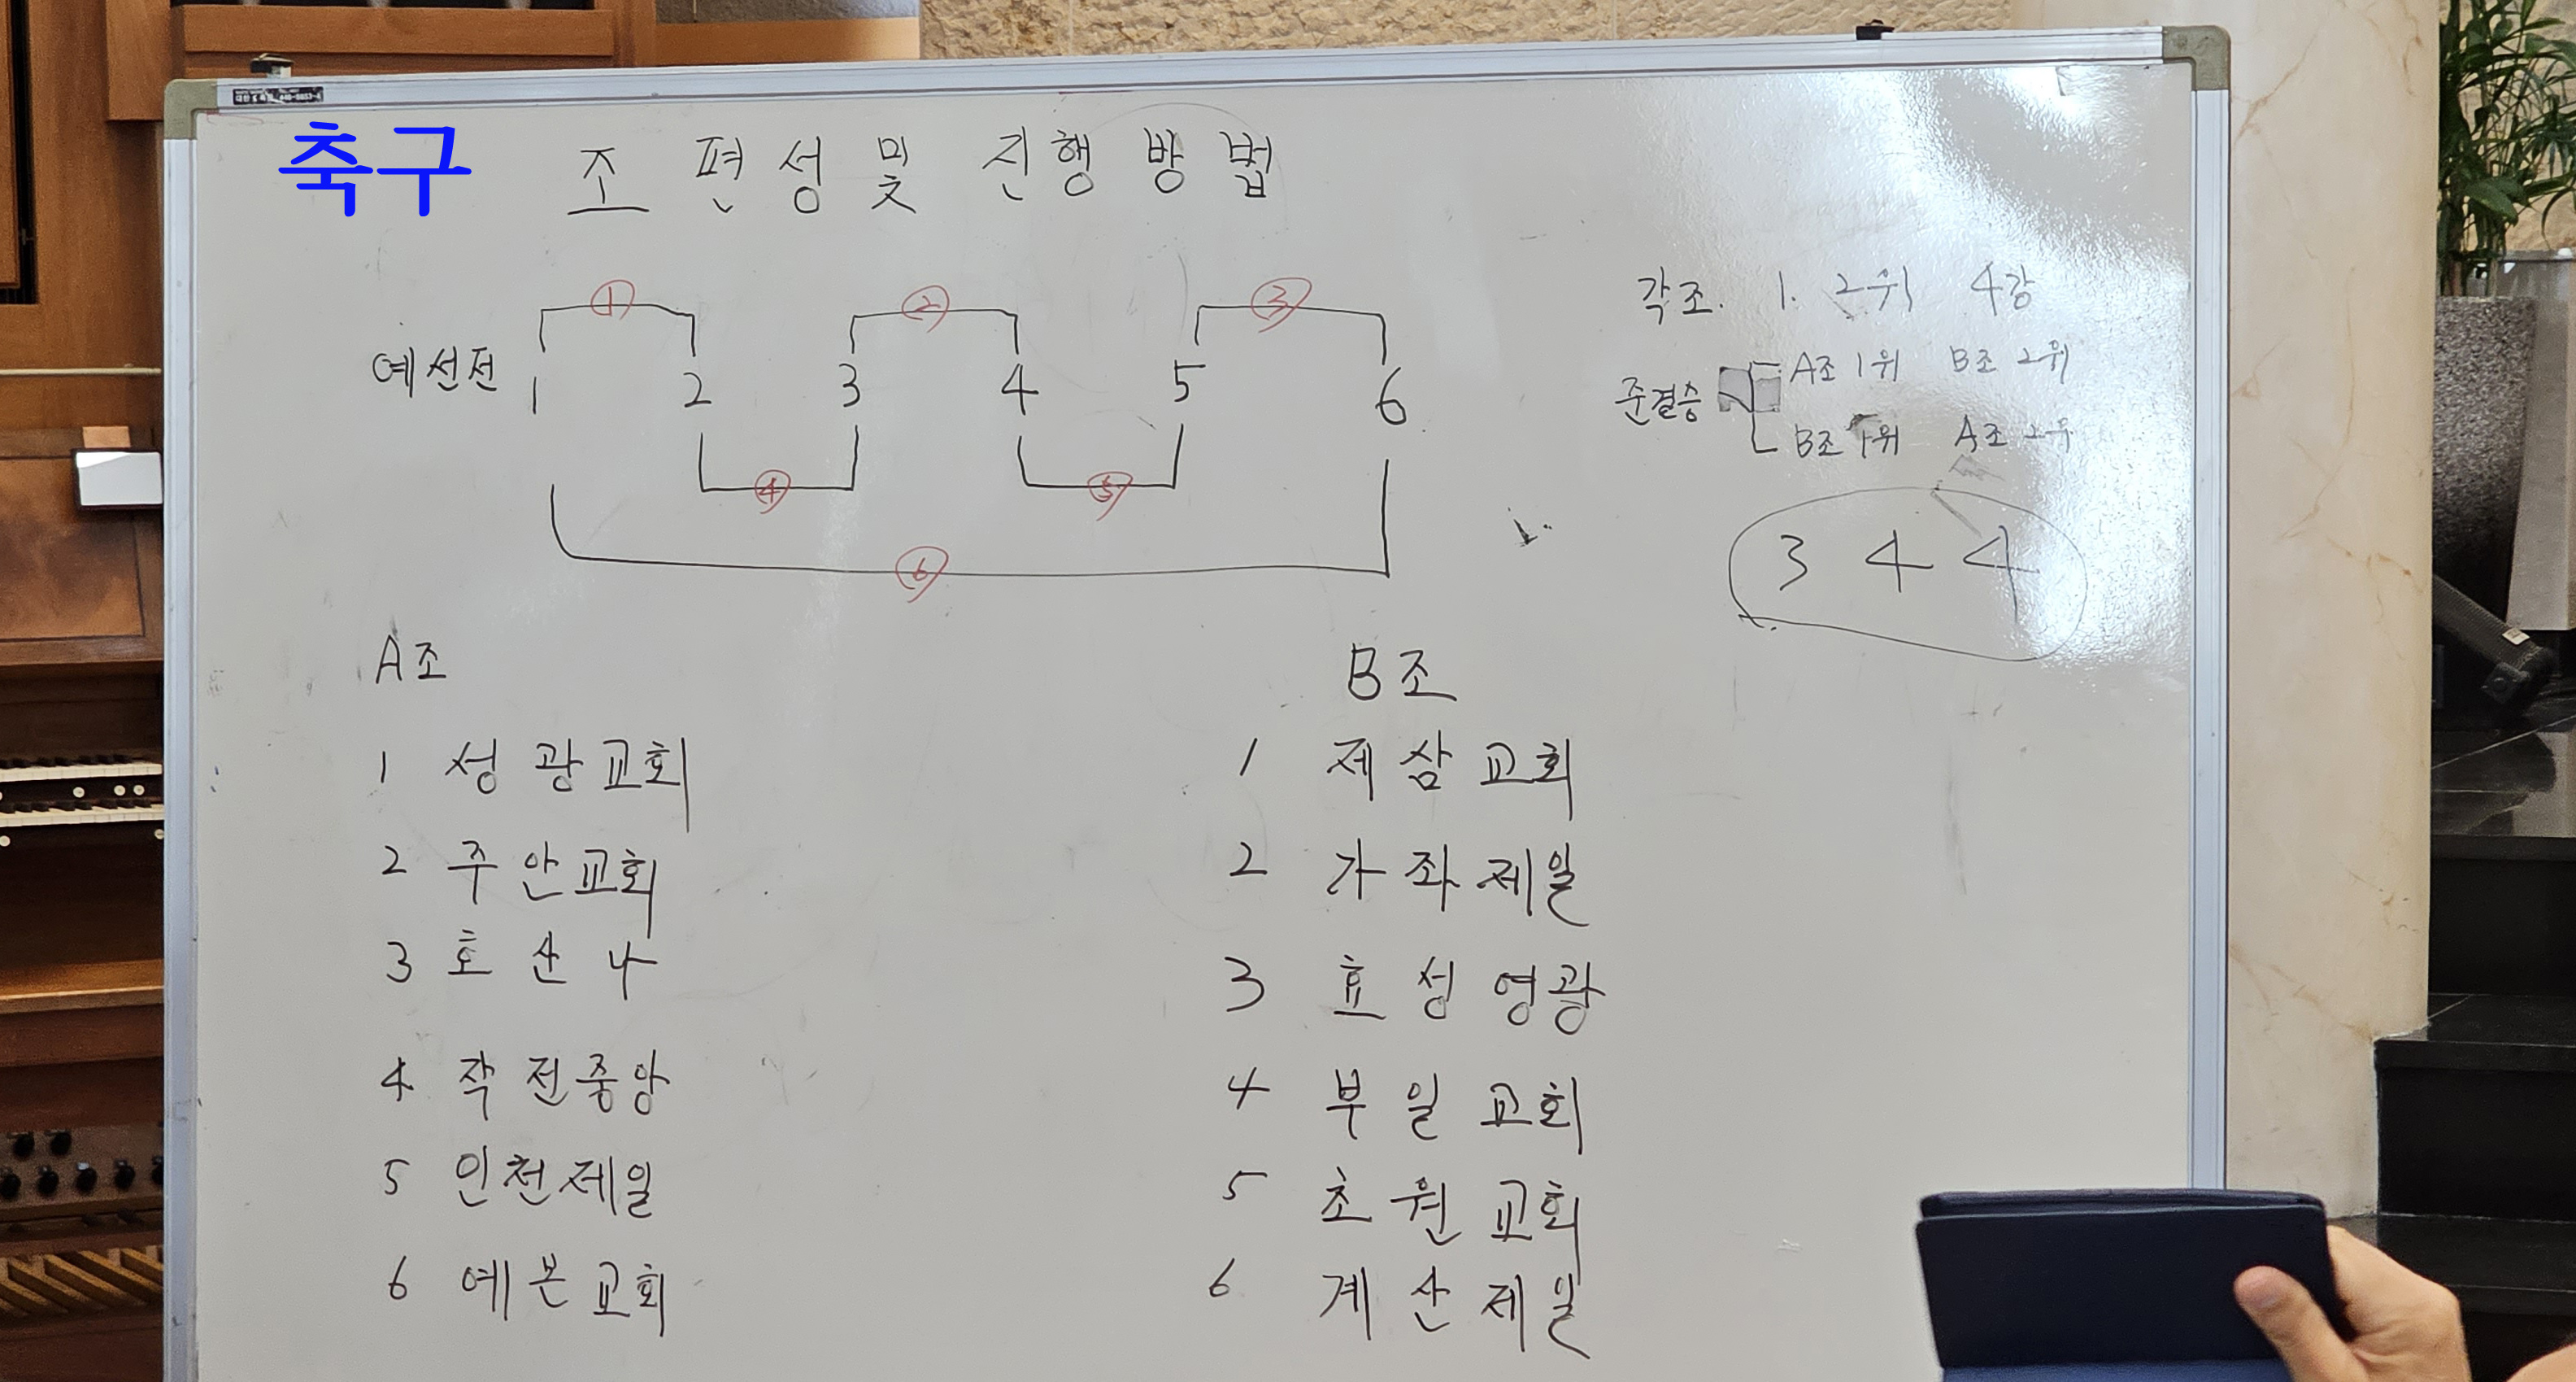 축구 조 편성 및 진행 방법
① ② ③
예선전 1 2 3 4 5 6
④ ⑤
⑥
각조. 1. 2위 4강
준결승 A조 1위 B조 2위
B조 1위 A조 2위
3 4 4
A조
1 성광교회
2 주안교회
3 호산나
4 작전중앙
5 인천제일
6 예본교회
B조
1 제삼교회
2 가좌제일
3 효성영광
4 부일교회
5 초원교회
6 계산제일